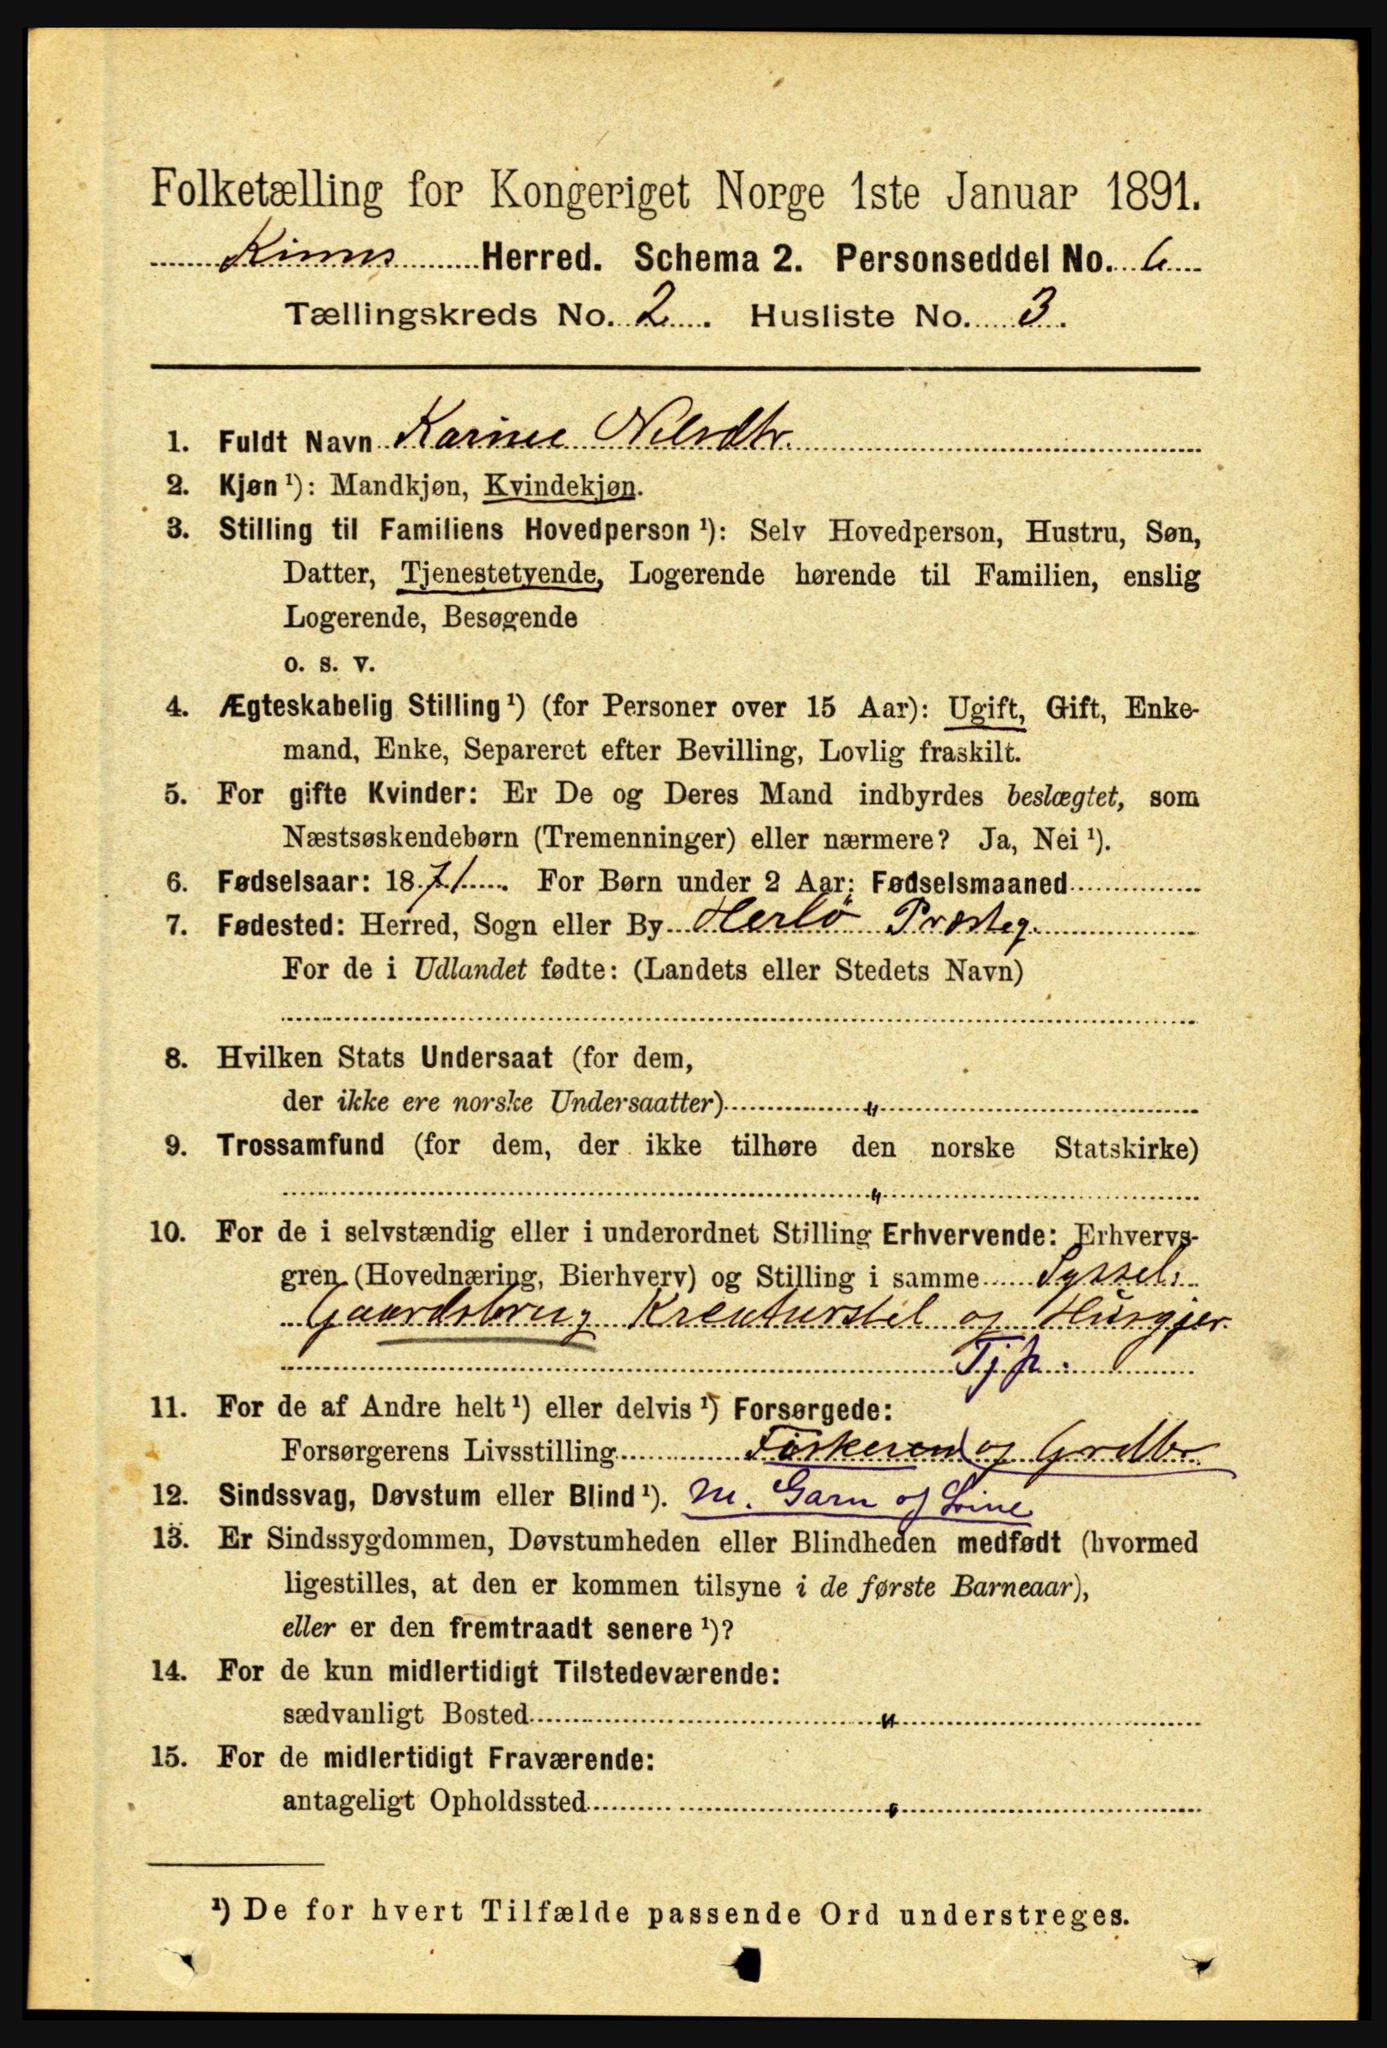 Folketælling for Kongeriget Norge 1ste Januar 1891.
Kinns Herred. Schema 2. Personseddel No. 6
Tællingskreds No. 2. Husliste No. 3.
1. Fuldt Navn Karine Nilsdtr.
2. Kjøn ¹): Mandkjøn, Kvindekjøn.
3. Stilling til Familiens Hovedperson ¹): Selv Hovedperson, Hustru, Søn,
Datter, Tjenestetyende, Logerende hørende til Familien, enslig
Logerende, Besøgende
o. s. v.
4. Ægteskabelig Stilling ¹) (for Personer over 15 Aar): Ugift, Gift, Enke-
mand, Enke, Separeret efter Bevilling, Lovlig fraskilt.
5. For gifte Kvinder: Er De og Deres Mand indbyrdes beslægtet, som
Næstsøskendebørn (Tremenninger) eller nærmere? Ja, Nei ¹).
6. Fødselsaar: 1871. For Børn under 2 Aar: Fødselsmaaned
7. Fødested: Herred, Sogn eller By Herlö Præsteg.
For de i Udlandet fødte: (Landets eller Stedets Navn)
8. Hvilken Stats Undersaat (for dem,
der ikke ere norske Undersaatter) "
9. Trossamfund (for dem, der ikke tilhøre den norske Statskirke)
"
10. For de i selvstændig eller i underordnet Stilling Erhvervende: Erhvervs-
gren (Hovednæring, Bierhverv) og Stilling i samme Syssel.
Gaardsbrug Kreaturstel og Husgjer.
Tjp.
11. For de af Andre helt ¹) eller delvis ¹) Forsørgede:
Forsørgerens Livsstilling Fisker og Grdbr
12. Sindssvag, Døvstum eller Blind ¹). m. Garn og Line
13. Er Sindssygdommen, Døvstumheden eller Blindheden medfødt (hvormed
ligestilles, at den er kommen tilsyne i de første Barneaar),
eller er den fremtraadt senere ¹)?
14. For de kun midlertidigt Tilstedeværende:
sædvanligt Bosted "
15. For de midlertidigt Fraværende:
antageligt Opholdssted "
¹) De for hvert Tilfælde passende Ord understreges.